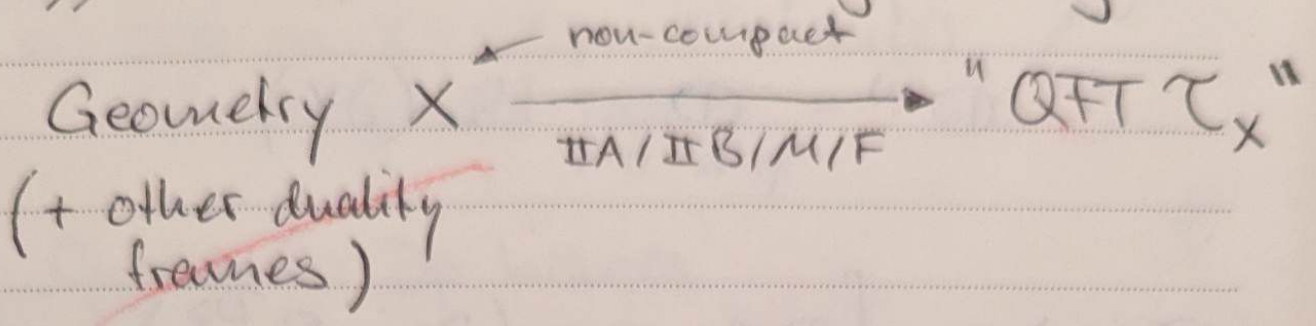 non-compact
Geometry X → "QFT τ_X"
IIA/IIB/M/F
(+ other duality
frames)